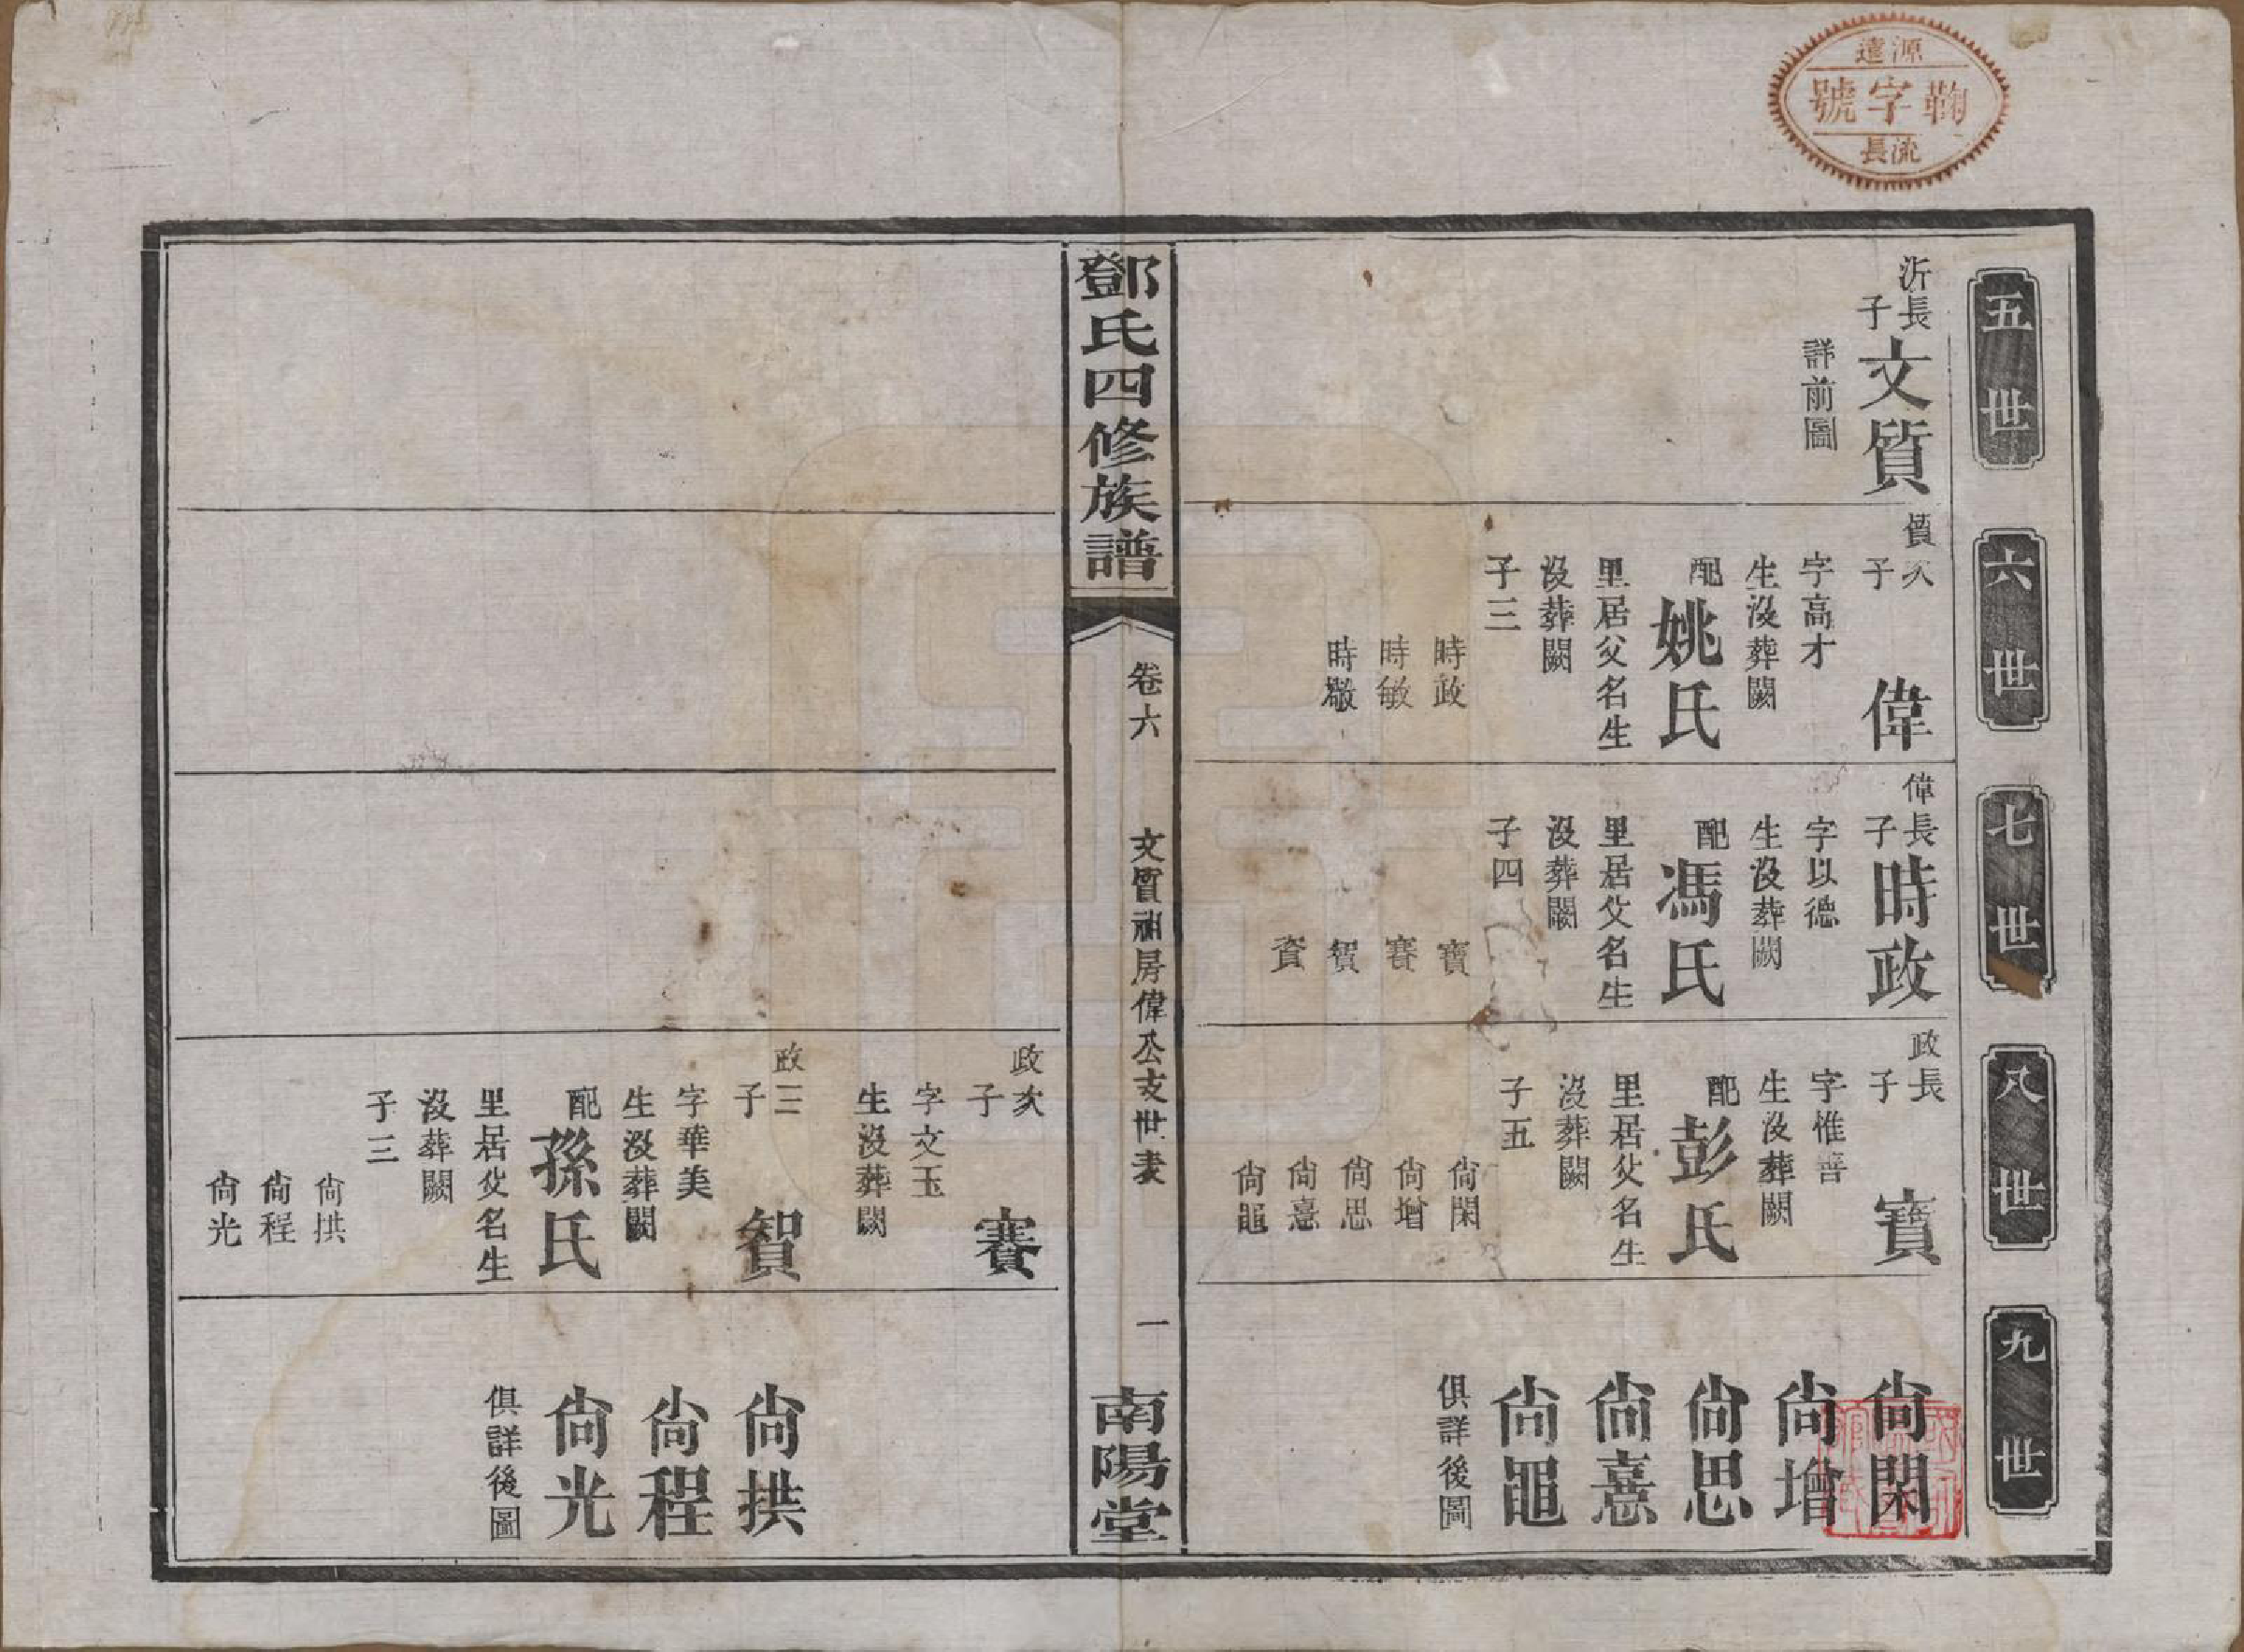 源遠
鞠字號
流長
五世
六世
七世
八世
九世
沂長子
文質
詳前圖
質次子
偉
字高才
生沒葬闕
配
姚氏
里居父名生
沒葬闕
子三
時政
時敏
時櫢
偉長子
時政
字以德
生沒葬闕
配
馮氏
里居父名生
沒葬闕
子四
寶
賽
賀
資
政長子
寶
字惟善
生沒葬闕
配
彭氏
里居父名生
沒葬闕
子五
尙閑
尙增
尙思
尙憙
尙黽
尙閑
尙增
尙思
尙憙
尙黽
俱詳後圖
鄧氏四修族譜
卷六
文質祖房偉公支世表
一
南陽堂
政次子
賽
字文玉
生沒葬闕
政三子
賀
字華美
生沒葬闕
配
孫氏
里居父名生
沒葬闕
子三
尙拱
尙程
尙光
尙拱
尙程
尙光
俱詳後圖